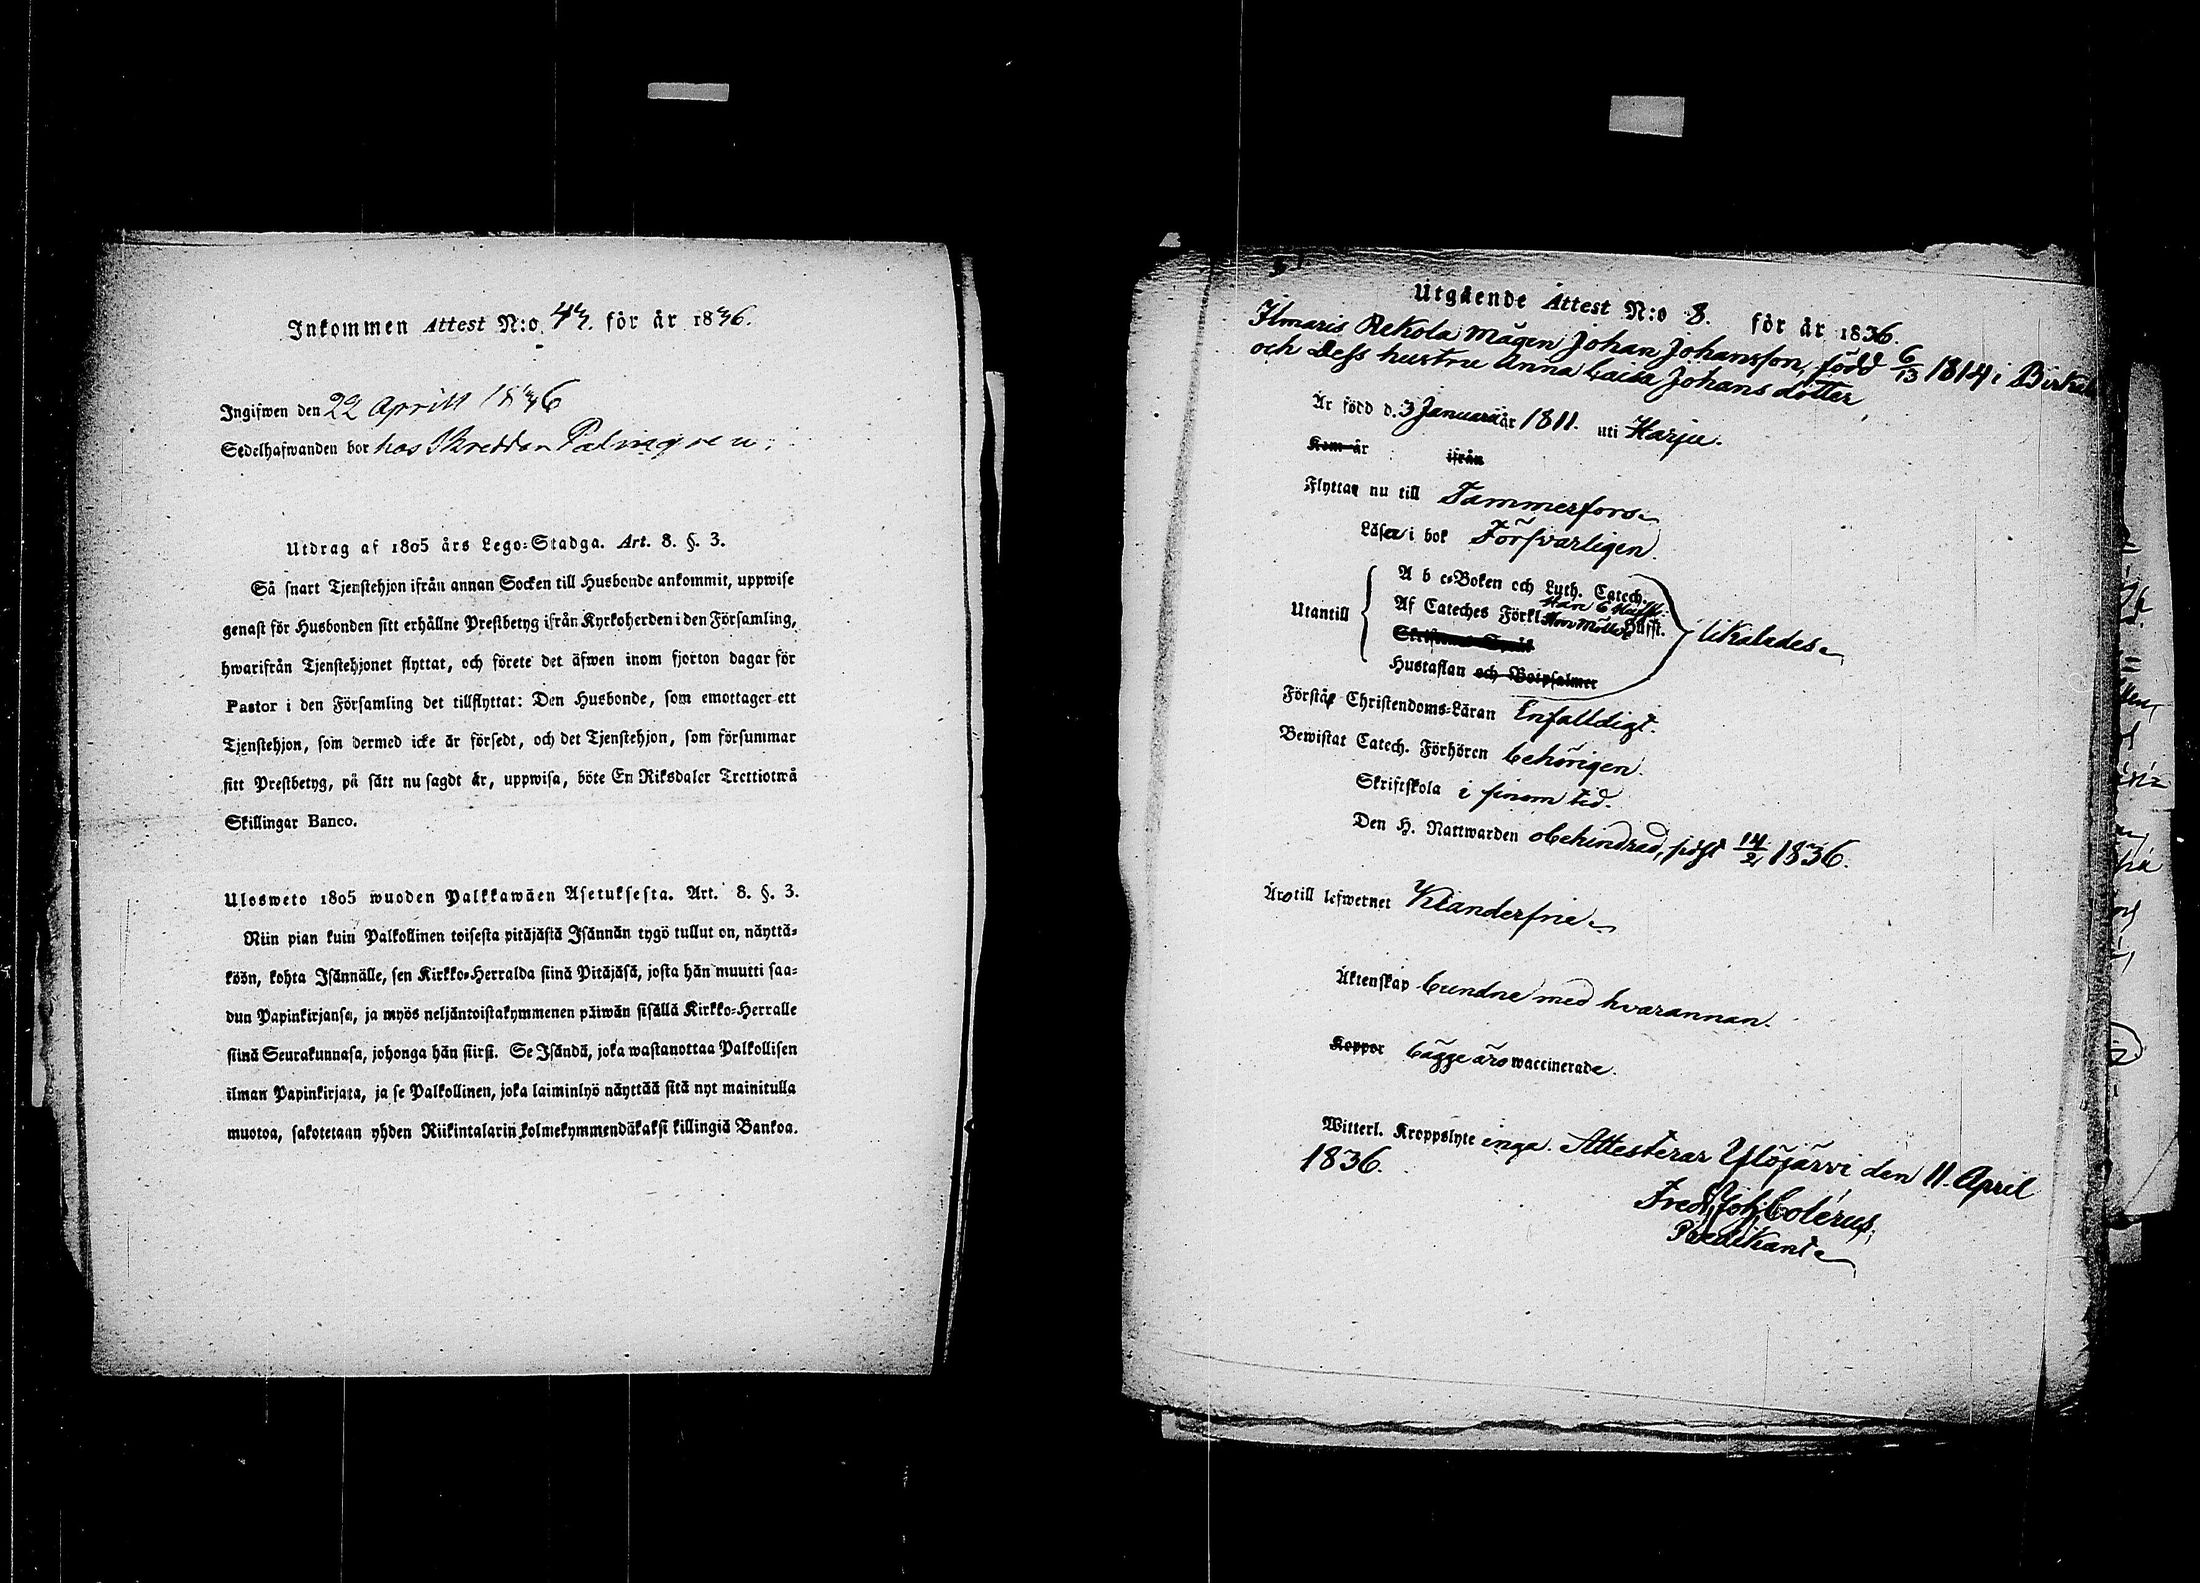 Inkommen Attest N:o 43. för år 1836.
Ingifwen den 22 Aprill 1836
Sedelhafwanden bor hos Skreddar Palmgren.
Utdrag af 1805 års Lego-Stadga. Art. 8. §. 3.
Så snart Tjenstehjon ifrån annan Socken till Husbonde ankommit, uppwise
genast för Husbonden sitt erhållne Prestbetyg ifrån Kyrkoherden i den Församling,
hwarifrån Tjenstehjonet flyttat, och förete det äfwen inom fjorton dagar för
Pastor i den Församling det tillflyttat: Den Husbonde, som emottager ett
Tjenstehjon, som dermed icke är försedt, och det Tjenstehjon, som försummar
sitt Prestbetyg, på sätt nu sagdt är, uppwisa, böte En Riksdaler Trettiotwå
Skillingar Banco.
Ulosweto 1805 wuoden Palkkawäen Asetuksesta. Art. 8. §. 3.
Niin pian kuin Palkollinen toisesta pitäjästä Isännän tygö tullut on, näyttä-
köön, kohta Isännälle, sen Kirkko-Herralda siinä Pitäjäsä, josta hän muutti saa-
dun Papinkirjansa, ja myös neljäntoistakymmenen päiwän sisällä Kirkko-Herralle
siinä Seurakunnasa, johonga hän siirsi. Se Isändä, joka wastanottaa Palkollisen
ilman Papinkirjata, ja se Palkollinen, joka laiminlyö näyttää sitä nyt mainitulla
muotoa, sakotetaan yhden Riikintalarin kolmekymmendäkaksi killingiä Bankoa.
Utgående Attest N:o 8. för år 1836.
Ilmaris Rekola Mågen Johan Johansson, född 6/13 1814 i Birkala
och Dess hustru Anna Caisa Johansdotter
Är född d. 3 Januari år 1811. uti Harju.
Kom år ifrån
Flyttar nu till Tammerfors.
Läser i bok Försvarligen.
A b c-Boken och Luth. Catech.
Utantill Af Cateches Förkl. Han 6 Hufst.
Hufst. likaledes.
Hustaflan och Botpsalmer
Förstår Christendoms-Läran Enfalldigt.
Bewistat Catech. Förhören behörigen.
Skriftskola i sinom tid.
Den H. Nattwarden obehindrad, sist 14/2 1836.
Äro till lefwernet Klanderfrie
Äktenskap bundne med hvarannan.
Koppor bägge äro waccinerade.
Witterl. Kroppslyte inga. Attesterar Ylöjärvi den 11. April
1836.
Fred. Joh. Colérus,
Predikant